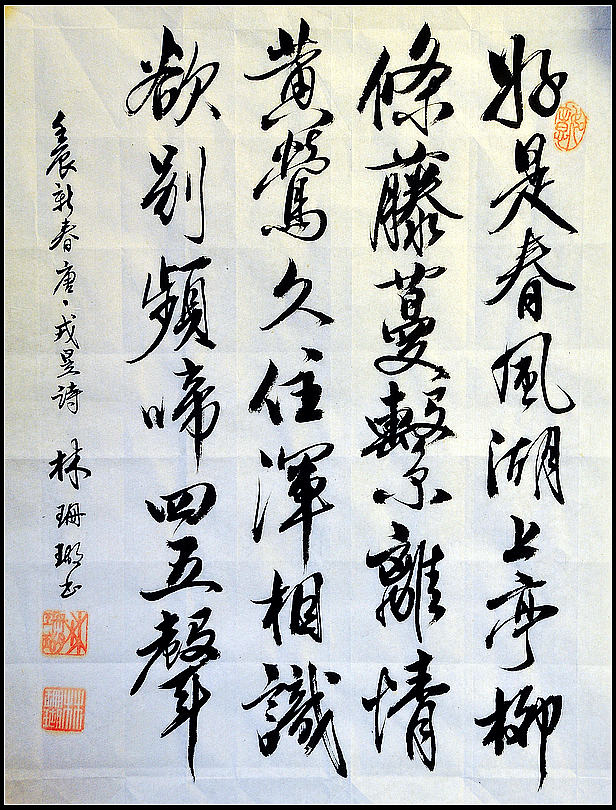 好是春風湖上亭柳
條藤蔓繫離情
黃鶯久住渾相識
欲別頻啼四五聲
壬辰新春唐、戎昱詩 林珊書